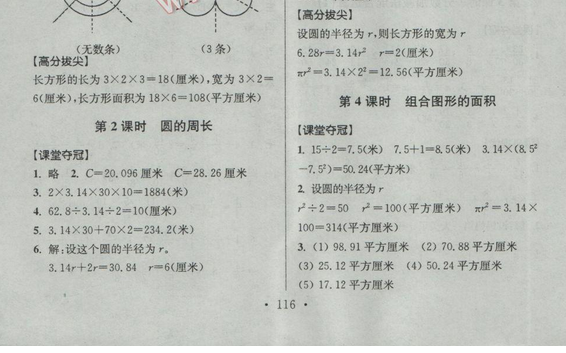 (无数条) (3条)
【高分拔尖】
长方形的长为 3×2×3=18(厘米),宽为 3×2=
6(厘米),长方形面积为 18×6=108(平方厘米)
第 2 课时 圆的周长
【课堂夺冠】
1. 略 2. C=20.096 厘米 C=28.26 厘米
3. 2×3.14×30×10=1884(米)
4. 62.8÷3.14÷2=10(厘米)
5. 3.14×30+70×2=234.2(米)
6. 解:设这个圆的半径为 r。
3.14r+2r=30.84 r=6(厘米)
【高分拔尖】
设圆的半径为 r,则长方形的宽为 r
6.28r=3.14r² r=2(厘米)
πr²=3.14×2²=12.56(平方厘米)
第 4 课时 组合图形的面积
【课堂夺冠】
1. 15÷2=7.5(米) 7.5+1=8.5(米) 3.14×(8.5²
-7.5²)=50.24(平方米)
2. 设圆的半径为 r
r²÷2=50 r²=100(平方厘米) πr²=3.14×
100=314(平方厘米)
3. (1) 98.91 平方厘米 (2) 70.88 平方厘米
(3) 25.12 平方厘米 (4) 50.24 平方厘米
(5) 17.12 平方厘米
· 116 ·